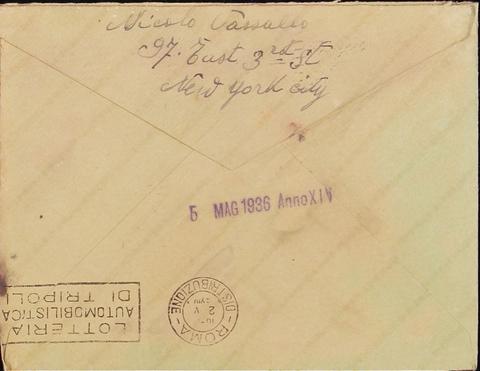 Nicolo Vassallo
97. East 3rd St
New York City
5 MAG 1936 Anno XIV
LOTTERIA
AUTOMOBILISTICA
DI TRIPOLI
ROMA
DISTRIBUZIONE
2 V